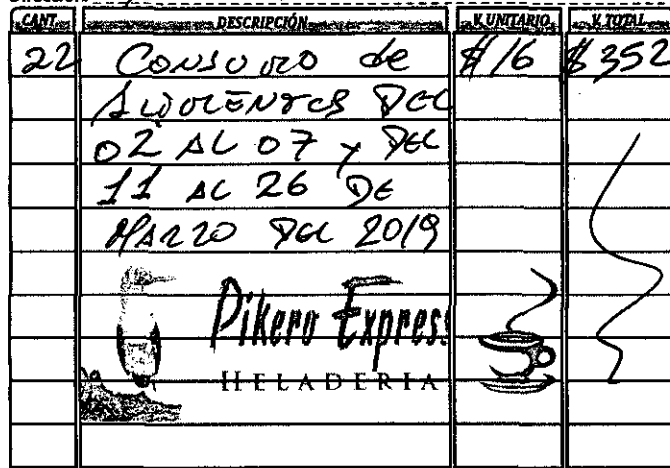 CANT. DESCRIPCIÓN V. UNITARIO V. TOTAL
22 Consumo de $16 $352
Alimentos DEL
02 AL 07 y DEL
11 AL 26 DE
MARZO DEL 2019
Pikero Express
HELADERIA